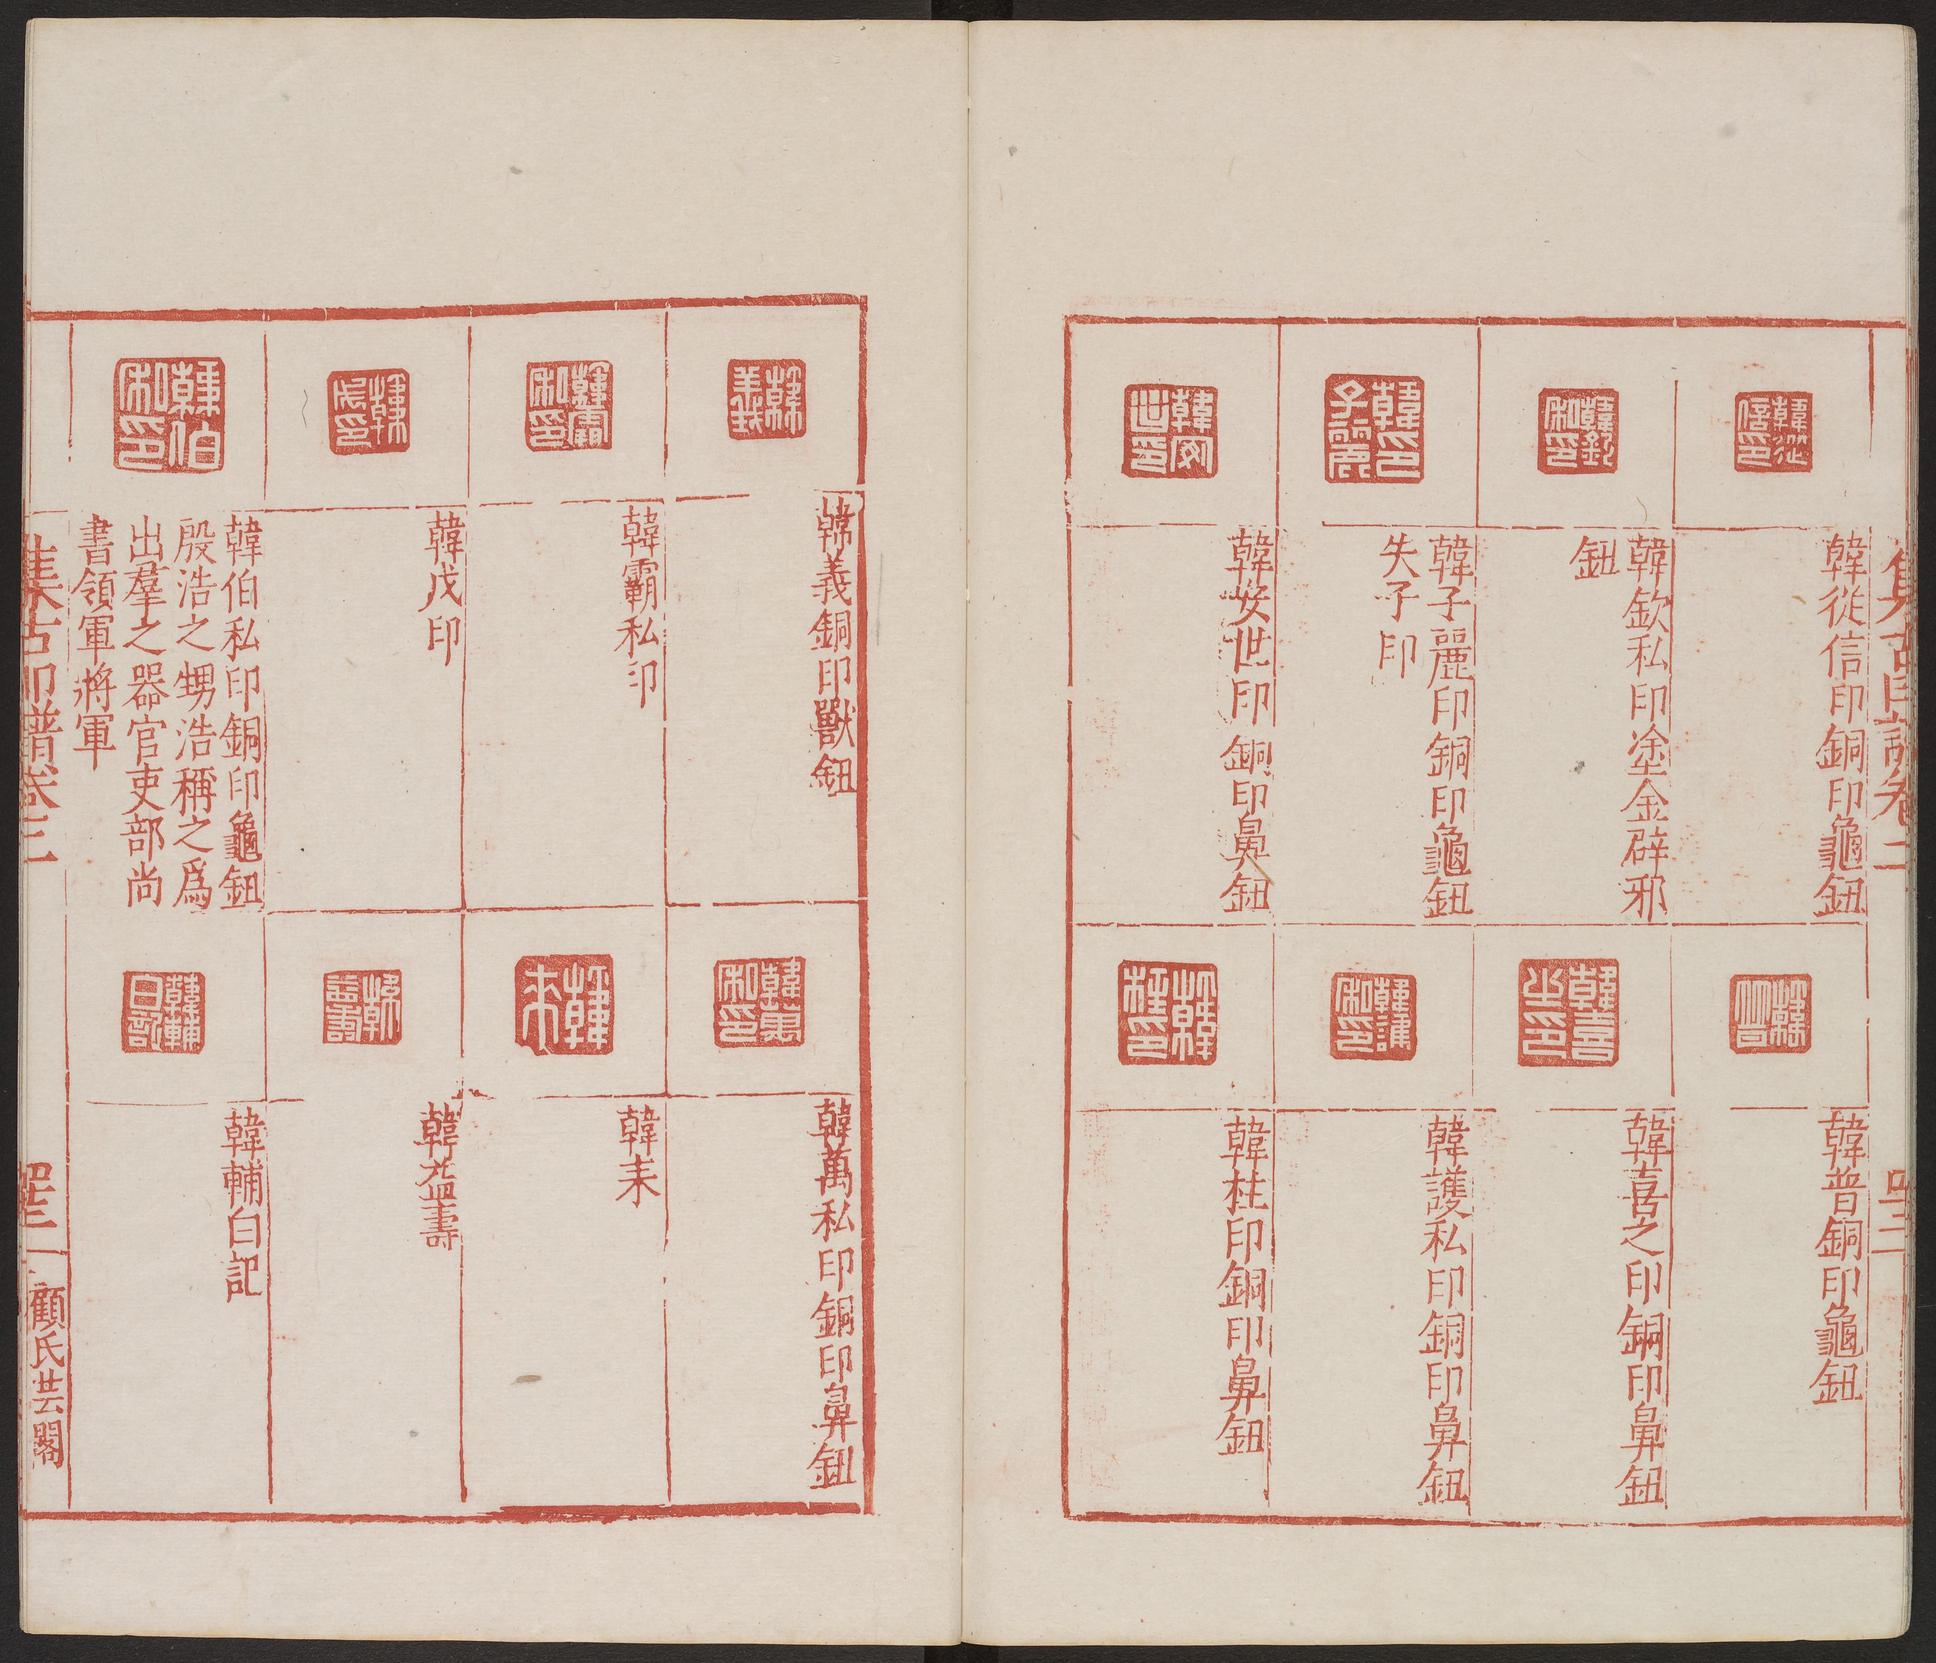 集古印譜卷二
韓從信印銅印龜鈕
韓欽私印塗金辟邪
鈕
韓子麗印銅印龜鈕
失子印
韓安世印銅印鼻鈕
韓普銅印龜鈕
韓喜之印銅印鼻鈕
韓護私印銅印鼻鈕
韓柱印銅印鼻鈕
韓義銅印獸鈕
韓霸私印
韓戊印
韓伯私印銅印龜鈕
殷浩之甥浩稱之爲
出羣之器官吏部尚
書領軍將軍
韓萬私印銅印鼻鈕
韓耒
韓益壽
韓輔白記
集古印譜卷三
顧氏芸閣